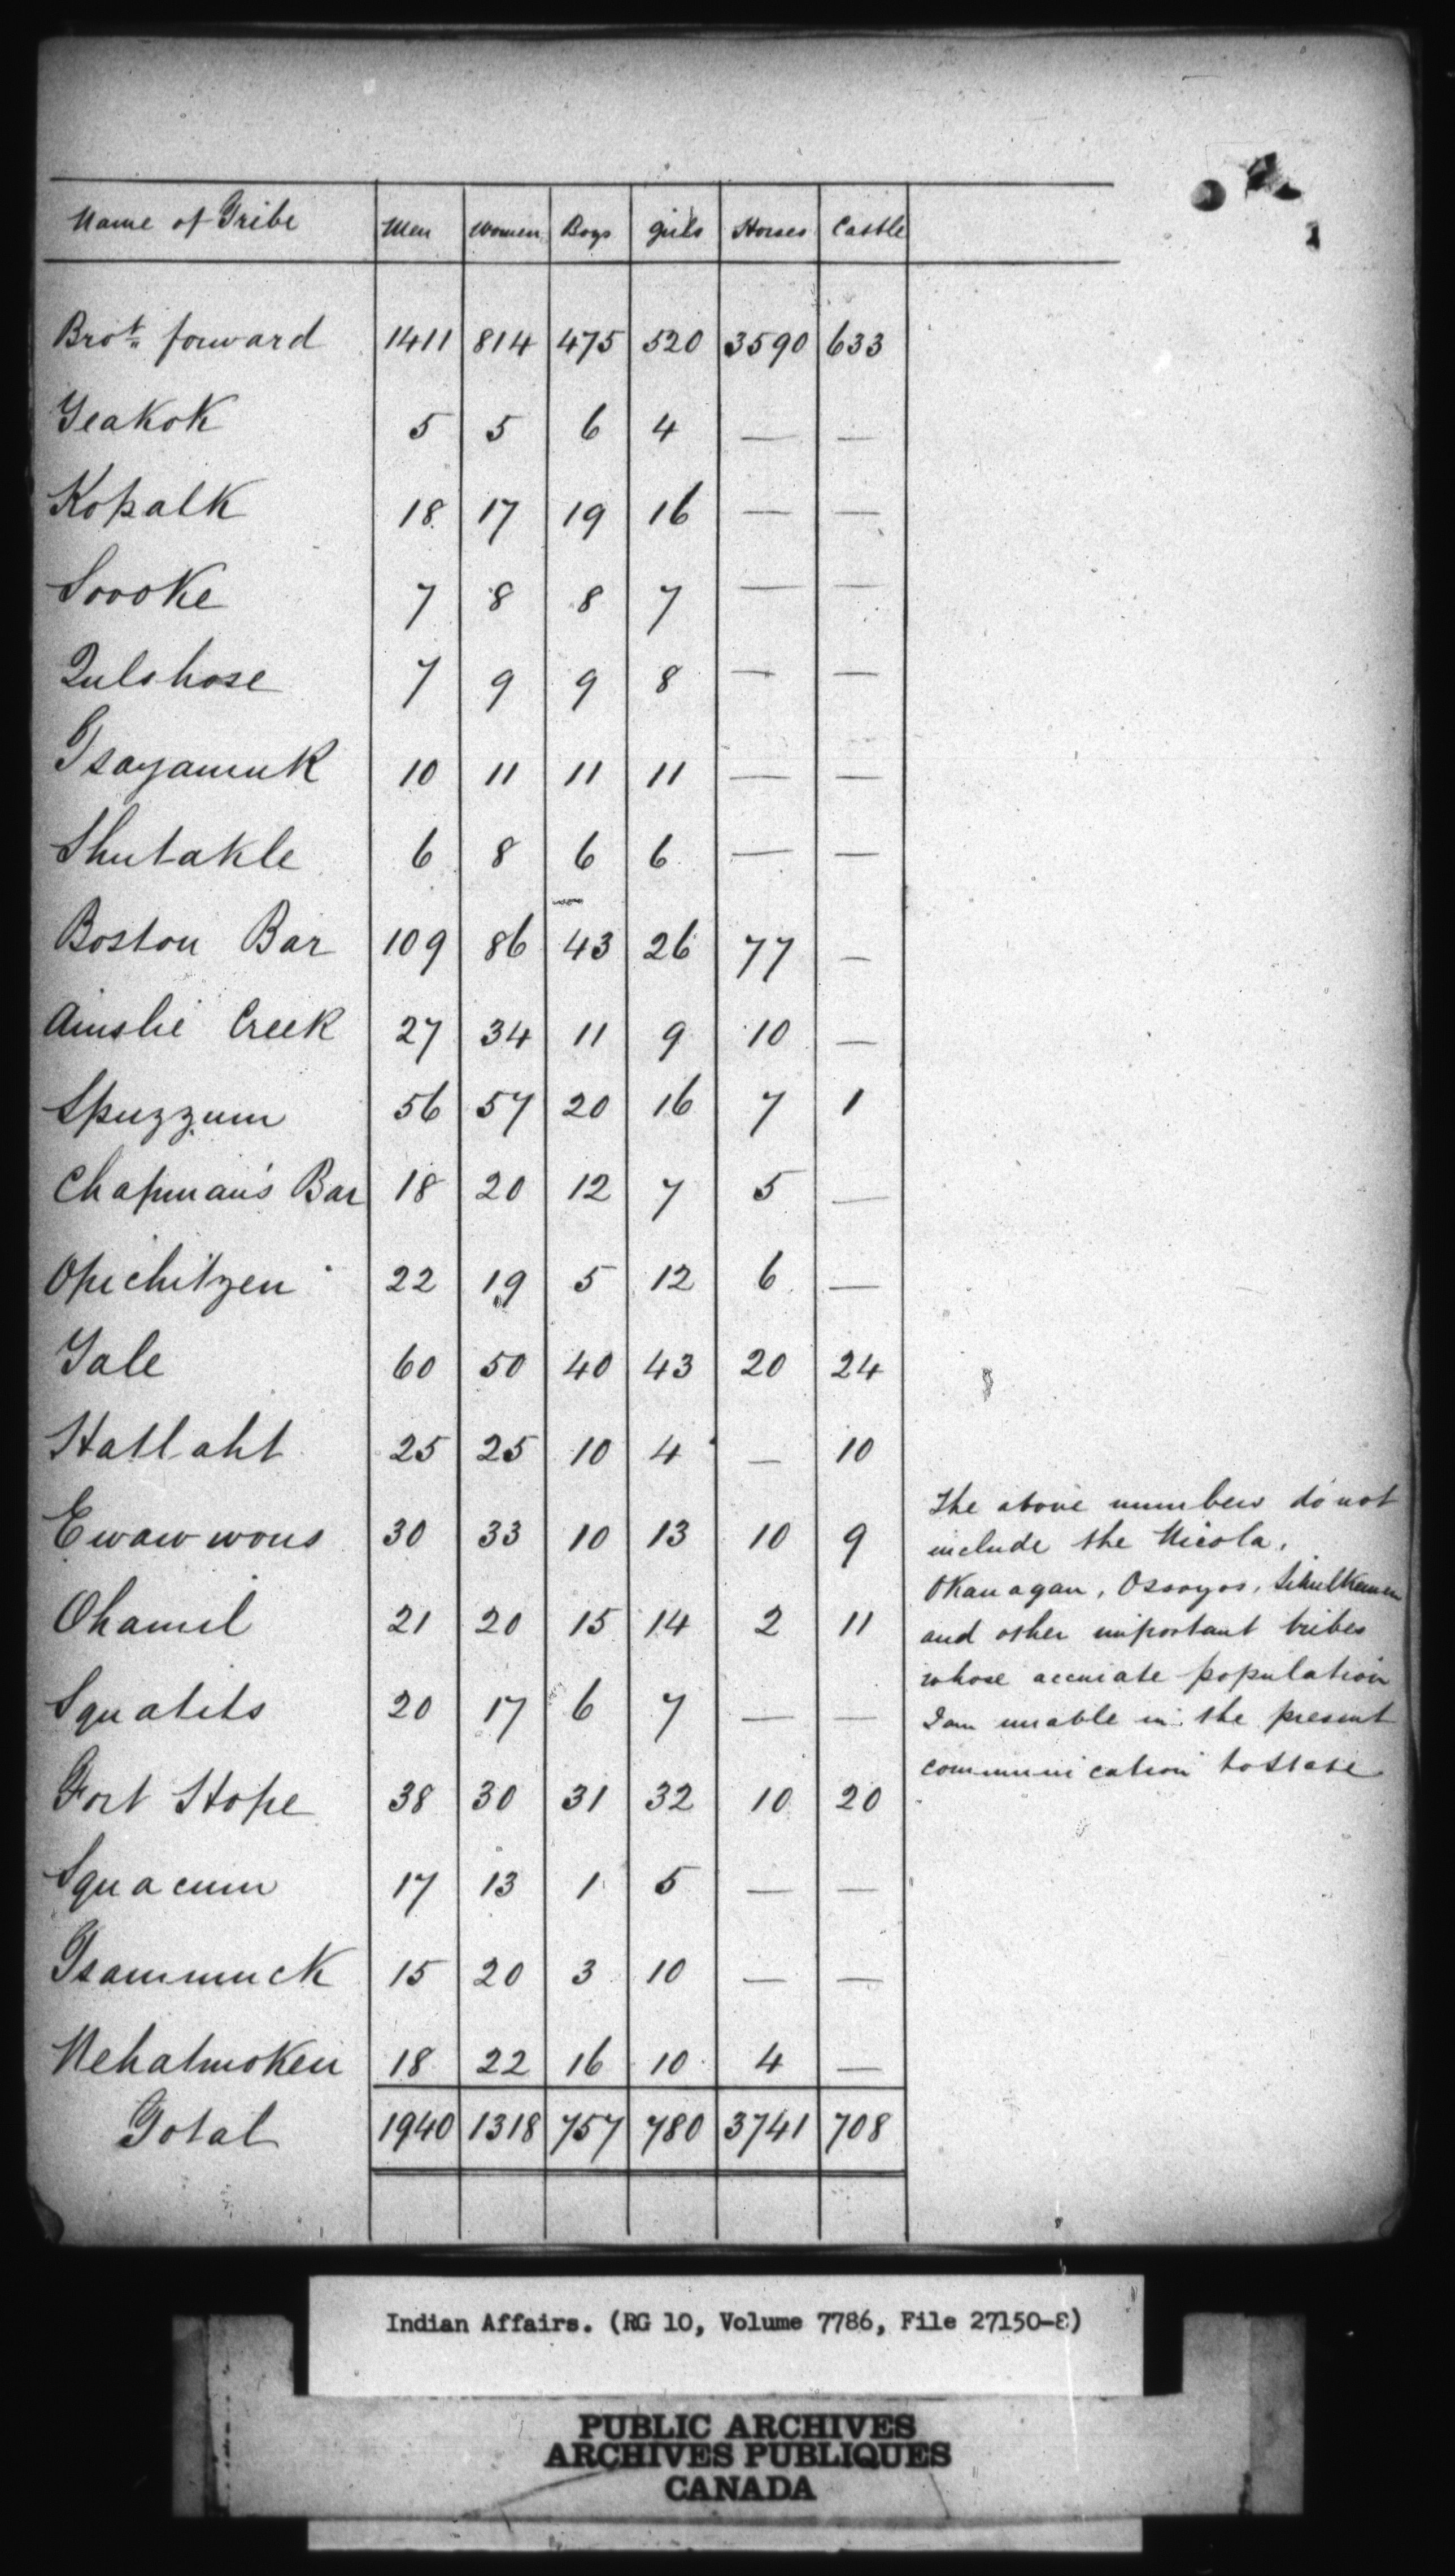 Name of Tribe Men Women Boys Girls Horses Cattle
Brot. forward 1411 814 475 520 3590 633
Yeakok 5 5 6 4 — —
Kopalk 18 17 19 16 — —
Sooke 7 8 8 7 — —
Qulshose 7 9 9 8 — —
Tsayamuk 10 11 11 11 — —
Shutakle 6 8 6 6 — —
Boston Bar 109 86 43 26 77 —
Ainslie Creek 27 34 11 9 10 —
Spuzzum 56 57 20 16 7 1
Chapman's Bar 18 20 12 7 5 —
Opichitzen 22 19 5 12 6 —
Yale 60 50 40 43 20 24
Hatlaht 25 25 10 4 — 10
Ewawwous 30 33 10 13 10 9
Ohamil 21 20 15 14 2 11
Squatits 20 17 6 7 — —
Fort Hope 38 30 31 32 10 20
Squacum 17 13 1 5 — —
Tsammuck 15 20 3 10 — —
Nehatmoken 18 22 16 10 4 —
Total 1940 1318 757 780 3741 708
The above numbers do not
include the Nicola,
Okanagan, Ossoyos,
and other important tribes
whose accurate population
I am unable in the present
communication to state
Indian Affairs. (RG 10, Volume 7786, File 27150-8)
PUBLIC ARCHIVES
ARCHIVES PUBLIQUES
CANADA